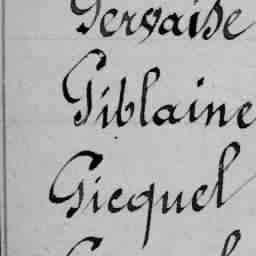 Gervaise
Giblaine
Gicquel